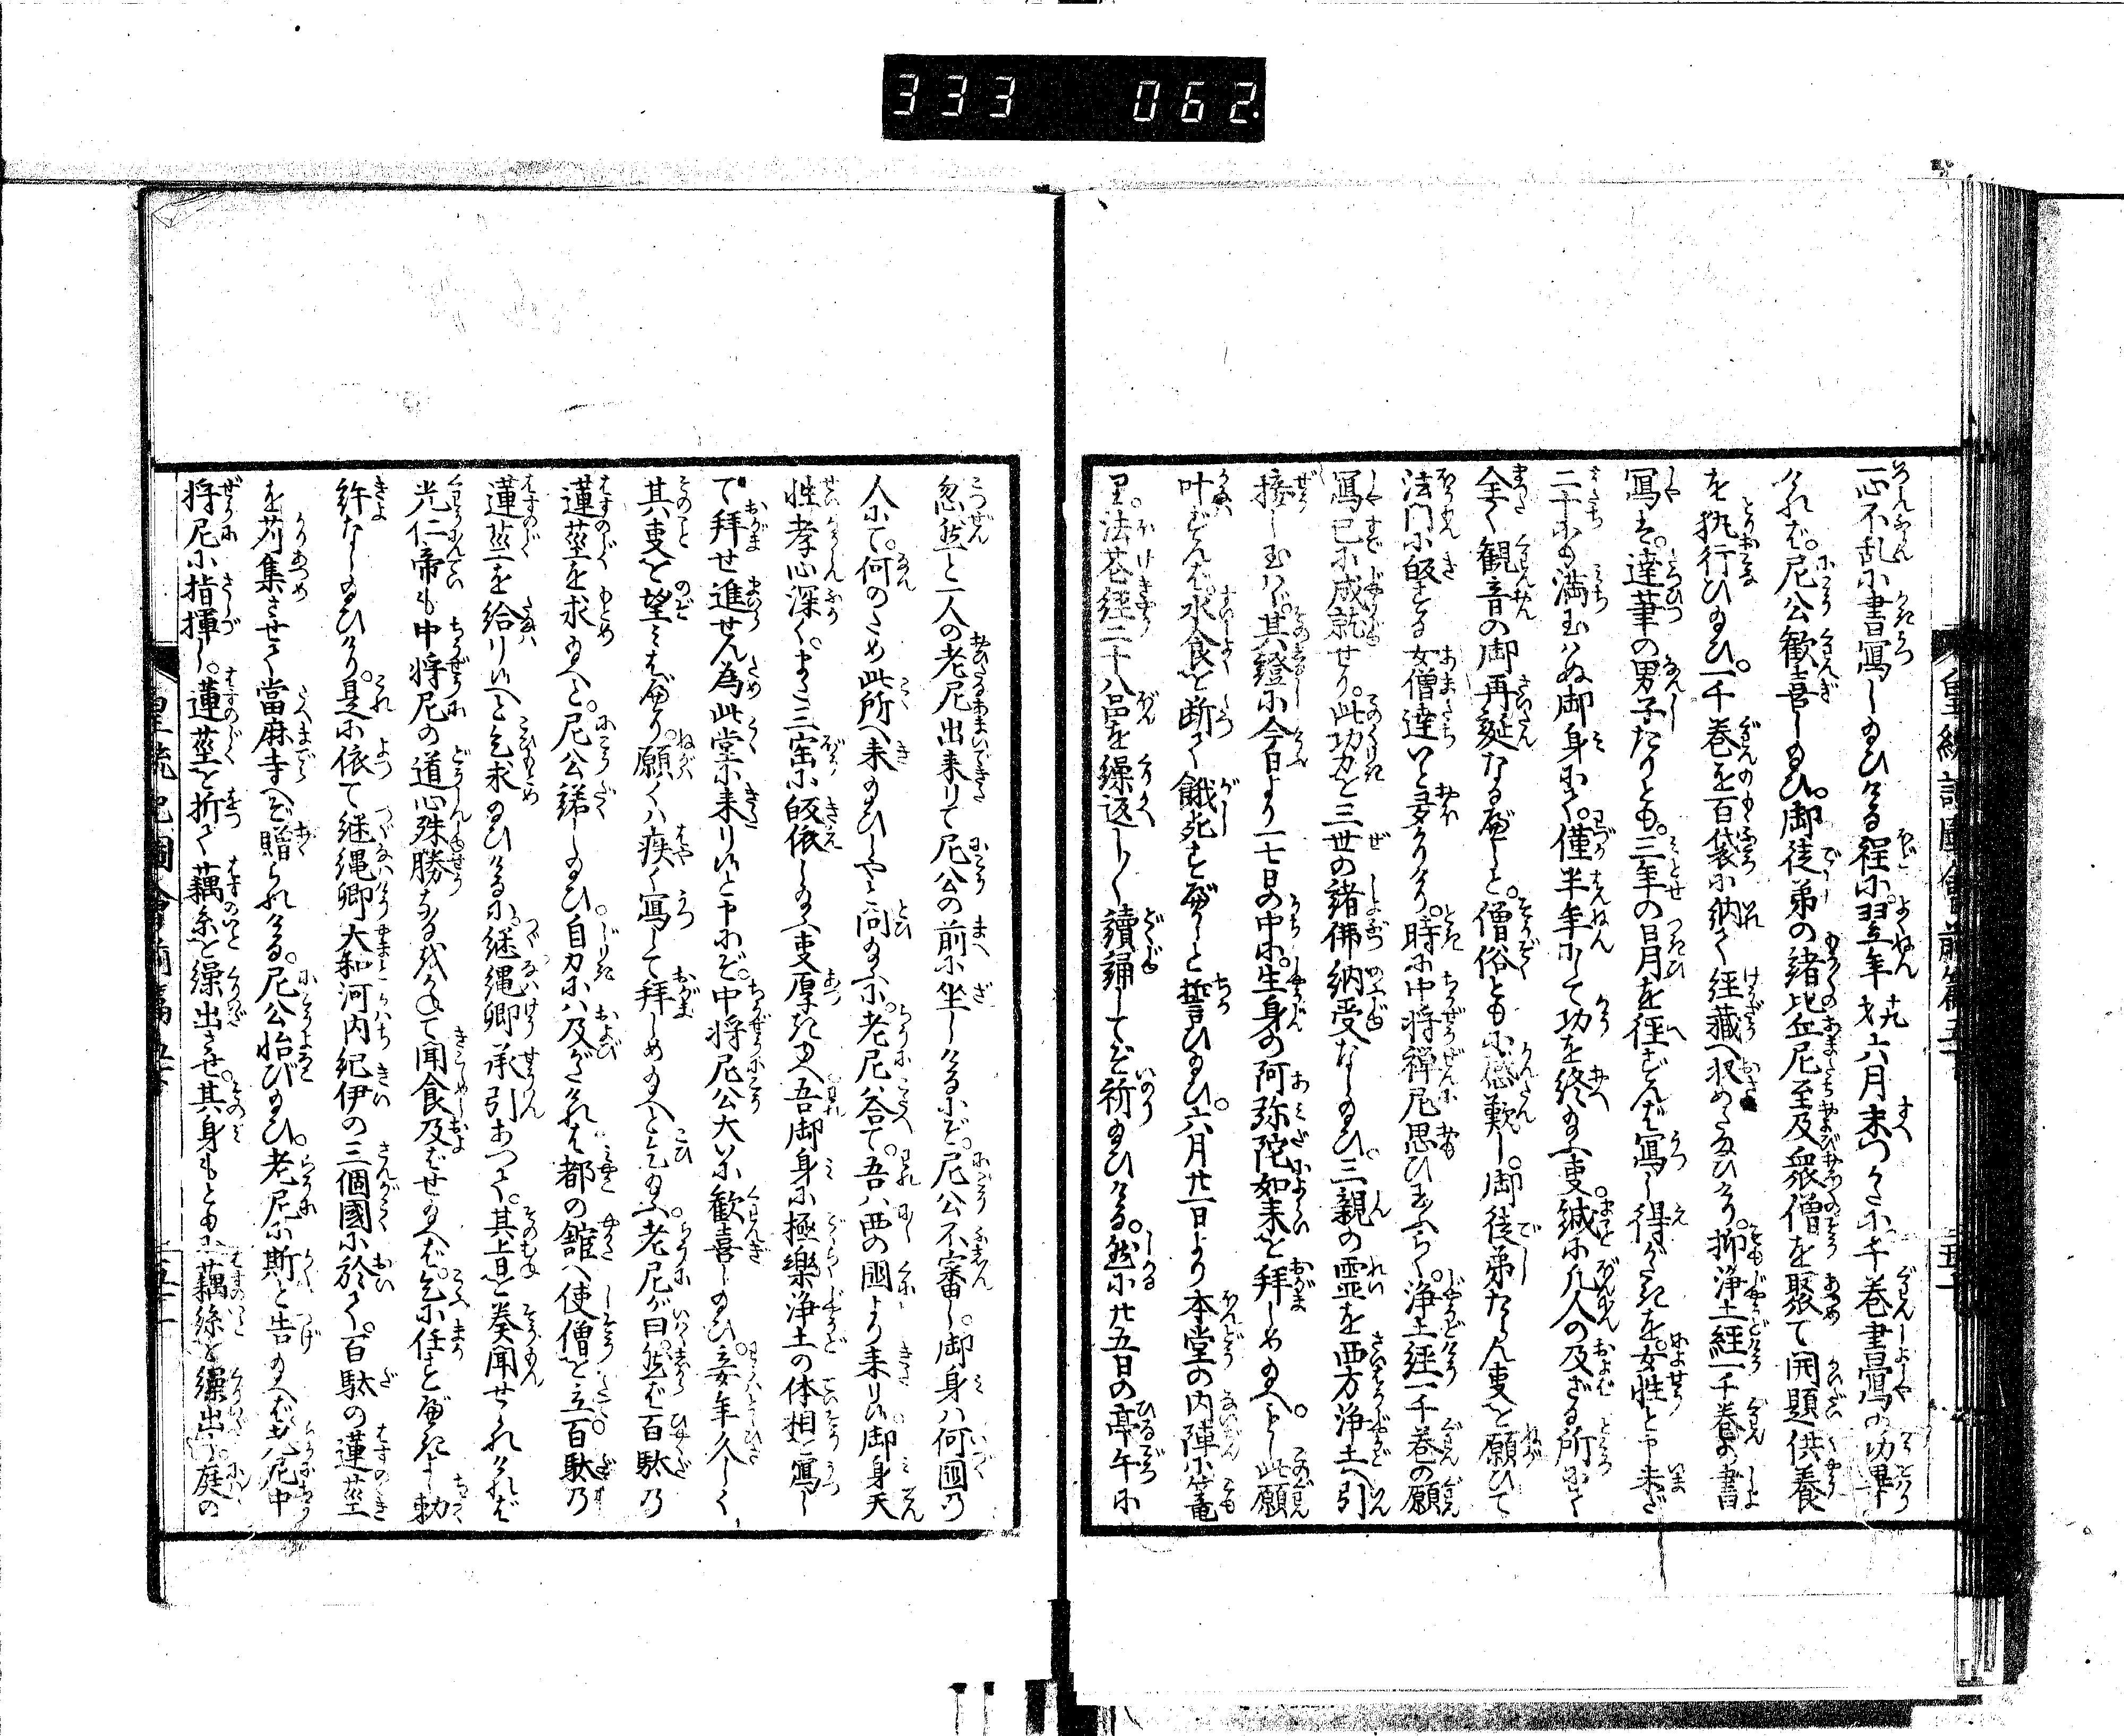 333 062
一心不乱に書寫し給ひける程に翌年十九才六月末つかたに千巻書寫の功畢
ければ。尼公歓喜し給ひ。御徒弟の諸比丘尼至及衆僧を聚て開題供養
を執行ひ給ひ。一千巻を百袋に納て経藏へ収めたまひけり。抑浄土経一千巻の書
寫は。達筆の男子たりとも。三年の日月を径ずんば寫し得がたきを。女性と申未ざ
二十にも満玉はぬ御身にて。僅半年にして功を終給ふ事誠に凡人の及ざる所にて
全く観音の御再誕なるべしと。僧俗ともに感歎し。御徒弟たらん事を願ひて
法門に皈する女僧達いと多かりけり。時に中将禅尼思ひ玉ふらく。浄土経一千巻の願
寫已に成就せり。此功力を三世の諸佛納受なし給ひ。二親の霊を西方浄土へ引
接し玉はゞ。其證に今日より一七日の中に。生身の阿弥陀如来を拝しめ給へ。もし此願
叶ずんば。水食を断て餓死すべしと誓ひ給ひ。六月廿一日より本堂の内陣に篭
り。法花経二十八品を繰返し〳〵讀誦してぞ祈給ひける。然に廿五日の亭午に
忽然と一人の老尼出来りて尼公の前に坐しけるにぞ。尼公不審し。御身ハ何國乃
人にて。何のため此所へ来給ひしやと問給ふに。老尼答て。吾ハ西の國より来りぬ。御身天
性孝心深く。よく三宝に皈依し給ふ事厚きゆへ吾御身に極樂浄土の体相を寫し
て拝せ進せん為此堂に来りぬと申にぞ。中将尼公大いに歓喜し給ひ。妾年久しく
其事を望みはべり。願くハ疾く寫して拝しめ給へと乞給ふ。老尼が曰。然ば百駄乃
蓮茎を求給へと。尼公諾し給ひ。自力にハ及がたければ都の舘へ使僧を立百駄乃
蓮茎を給りぬへと乞求給ひけるに継縄卿承引あつて。其旨を奏聞せられければ
光仁帝も中将尼の道心殊勝なる我かねて聞食及ばせ給へば。乞に任すべきよし勅
許なし給ひけり。是に依て継縄卿大和河内紀伊の三個國に於て。百駄の蓮茎
を苅集させて當麻寺へぞ贈られける。尼公怡び給ひ。老尼に斯と告給へば老尼中
将尼に指揮し。蓮茎を折て藕糸を繰出させ。其身もともに藕絲を繰出し庭の